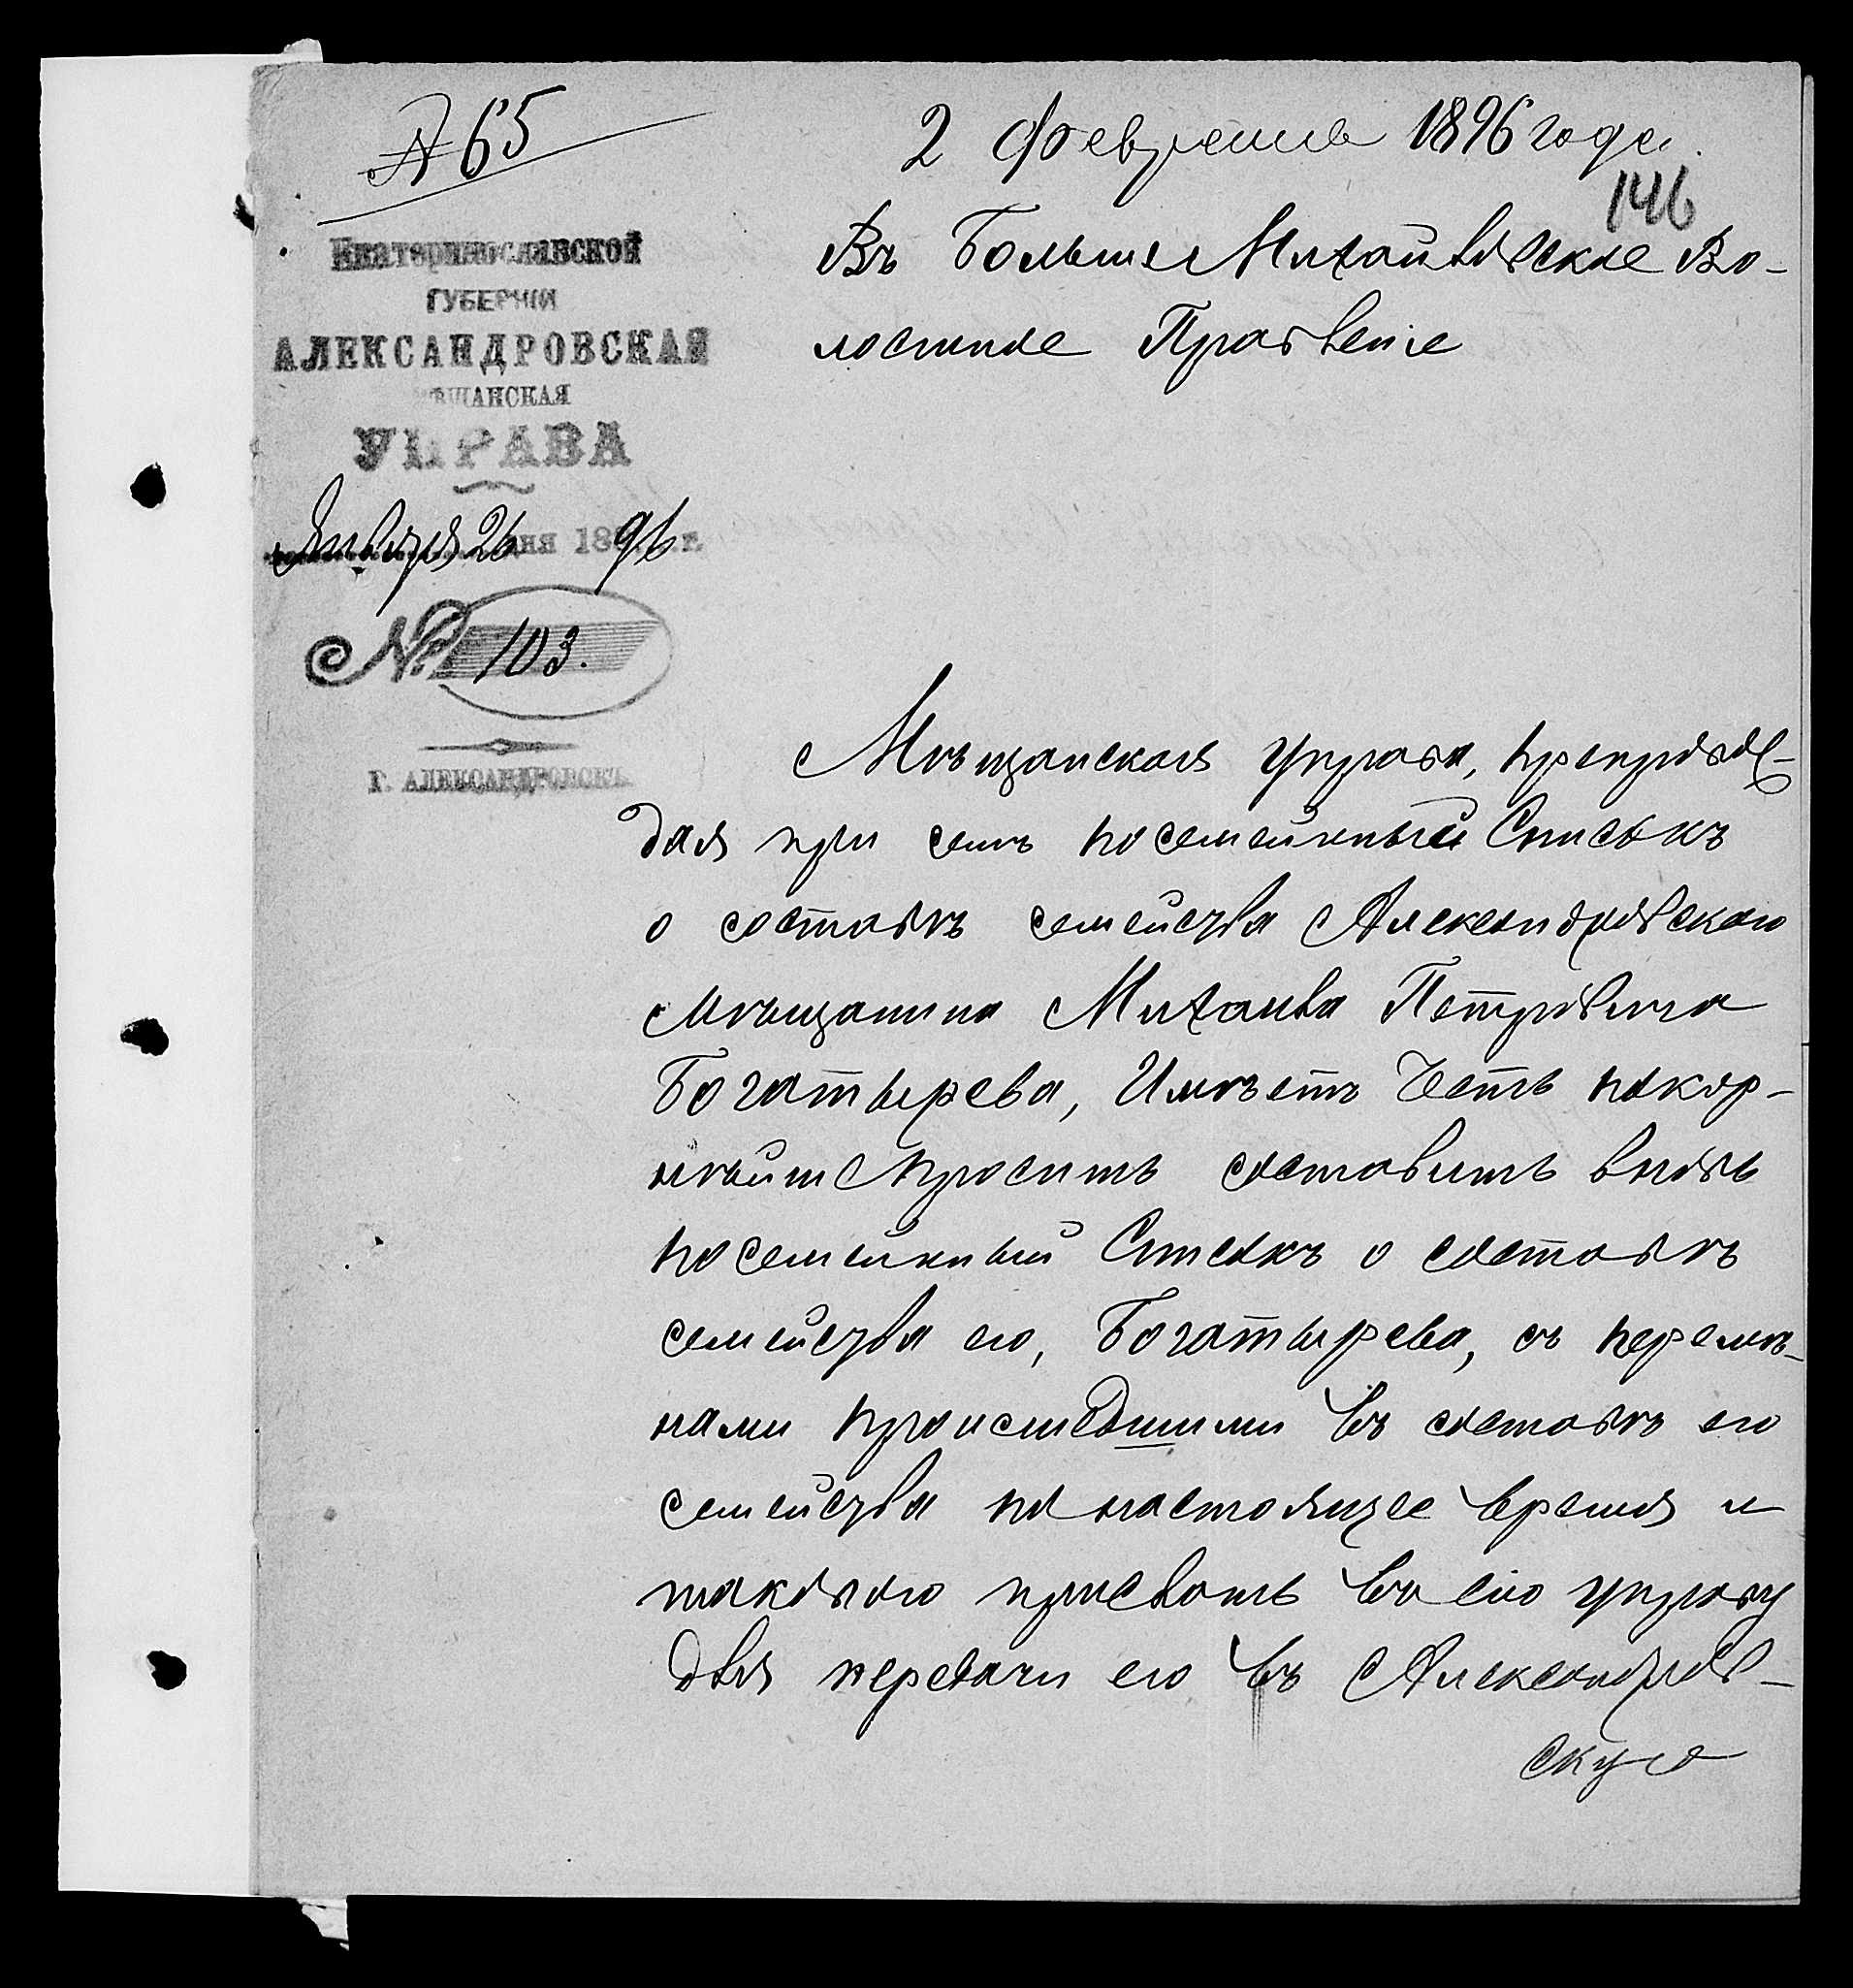 № 65
2 февраля 1896 года.
146
Екатеринославской
ГУБЕРНІИ
АЛЕКСАНДРОВСКАЯ
МѢЩАНСКАЯ
УПРАВА
Января 26 дня 1896 г.
№ 103.
Г. АЛЕКСАНДРОВСКЪ
Въ Больше Михайловское Во-
лостное Правленіе
Мѣщанская управа, препровож-
дая при семъ посемейный Списокъ
о составѣ семейства Александровскаго
мѣщанина Михаила Петровича
Богатырева, Имѣетъ Честь покор-
нѣйше просить составить вновь
посемейный Списокъ о составѣ
семейства его, Богатырева, съ перемѣ-
нами происшедшими въ составѣ его
семейства по настоящее время и
таковаго прислать въ сію управу
для передачи его въ Александров-
скую